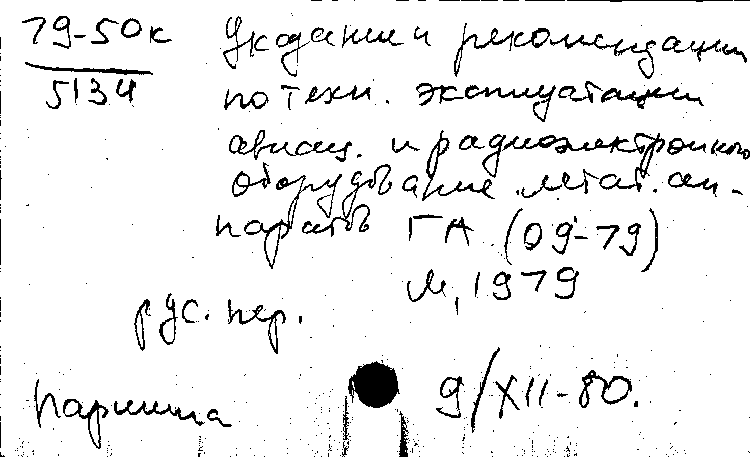 79-50к
5134
Указание и рекомендации
по техн. эксплуатации
авиац. и радиоэлектронного
оборудование летат. ап-
паратов ГА (09-79)
М, 1979
рус. пер.
9/XII-80.